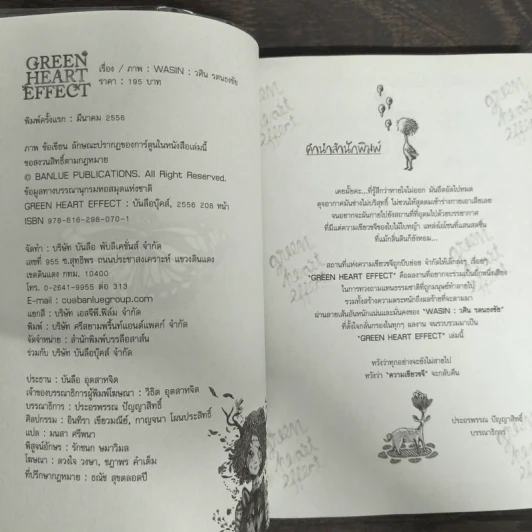 GREEN
HEART
EFFECT
เรื่อง / ภาพ : WASIN : วศิน รตนธงชัย
ราคา : 195 บาท
พิมพ์ครั้งแรก : มีนาคม 2556
ภาพ ข้อเขียน ลักษณะปรากฎของการ์ตูนในหนังสือเล่มนี้
ขอสงวนสิทธิ์ตามกฎหมาย
© BANLUE PUBLICATIONS. All Right Reserved.
ข้อมูลทางบรรณานุกรมหอสมุดแห่งชาติ
GREEN HEART EFFECT : บันลือบุ๊คส์, 2556 208 หน้า
ISBN 978-616-298-070-1
จัดทำ : บริษัท บันลือ พับลิเคชั่นส์ จำกัด
เลขที่ 955 ซ.สุทธิพร ถนนประชาสงเคราะห์ แขวงดินแดง
เขตดินแดง กทม. 10400
โทร. 0-2641-9955 ต่อ 313
E-mail : cu@banluegroup.com
แยกสี : บริษัท เอสจีพี.ฟิล์ม จำกัด
พิมพ์ : บริษัท ศรีสยามพริ้นท์แอนด์แพคก์ จำกัด
จัดจำหน่าย : สำนักพิมพ์บรรลือสาส์น
ร่วมกับ บริษัท บันลือบุ๊คส์ จำกัด
ประธาน : บันลือ อุตสาหจิต
เจ้าของบรรณาธิการผู้พิมพ์โฆษณา : วิธิต อุตสาหจิต
บรรณาธิการ : ประอรพรรณ ปัญญาสิทธิ์
ศิลปกรรม : อินทิรา เขียวมณีย์, กาญจนา โผนประสิทธิ์
แปล : มนสา ศรีพนา
พิสูจน์อักษร : รักชนก ษมาวิมล
โฆษณา : ดวงใจ วงษา, ชฎาพร คำเติม
ที่ปรึกษากฎหมาย : ธณัช สุขตลอดปี
คำนำสำนักพิมพ์
เคยมั้ยคะ...ที่รู้สึกว่าหายใจไม่ออก มันอึดอัดไปหมด
ดุจอากาศมันช่างไม่บริสุทธิ์ ไม่ชวนให้สูดดมเข้าร่างกายเอาเสียเลย
จนอยากจะผันกายไปยังสถานที่ที่อุดมไปด้วยบรรยากาศ
ที่มีแต่ความเขียวขจีของใบไม้ใบหญ้า แหล่งโอโซนที่แสนสดชื่น
ที่แม้กลิ่นดินก็ยังหอม...
สถานที่แห่งความเขียวขจีถูกบีบย่อย จำกัดให้เล็กลงๆ เรื่อยๆ
"GREEN HEART EFFECT" คือผลงานที่อยากจะร่วมเป็นอีกหนึ่งเสียง
ในการทวงถามแทนธรรมชาติที่ถูกมนุษย์ทำลายไป
รวมทั้งสร้างความตระหนักถึงผลร้ายที่จะตามมา
ผ่านลายเส้นอันหนักแน่นและมั่นคงของ "WASIN : วศิน รตนธงชัย"
ที่ตั้งใจกลั่นกรองในทุกๆ ผลงาน จนรวบรวมมาเป็น
"GREEN HEART EFFECT" เล่มนี้
หวังว่าทุกอย่างจะยังไม่สายไป
หวังว่า "ความเขียวขจี" จะกลับคืน
ประอรพรรณ ปัญญาสิทธิ์
บรรณาธิการ
green
heart
effect
green
heart
effect
green
heart
effect